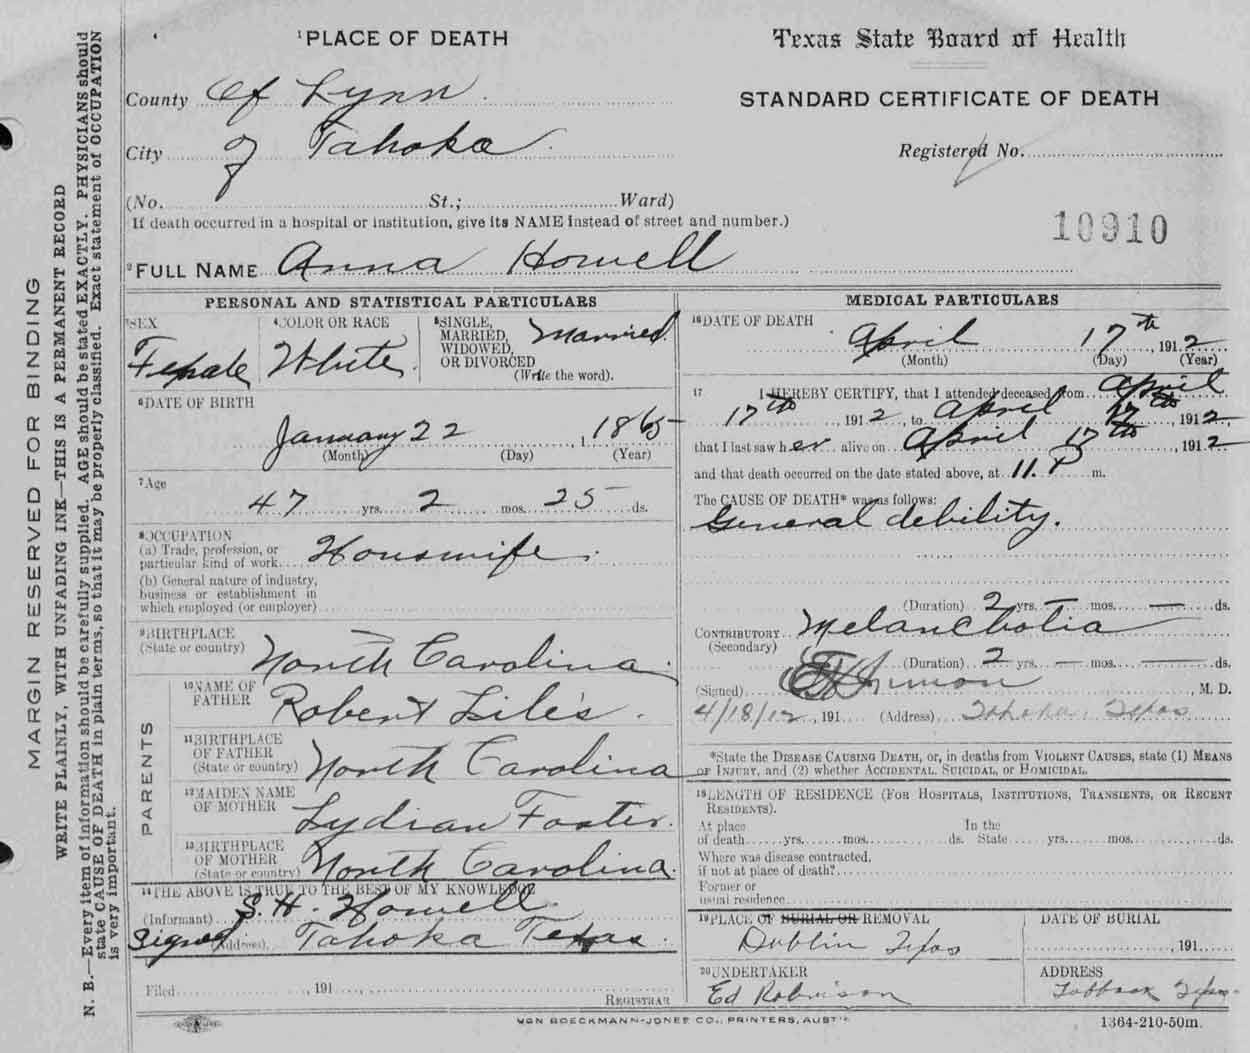 MARGIN RESERVED FOR BINDING
WRITE PLAINLY, WITH UNFADING INK—THIS IS A PERMANENT RECORD
N. B.—Every item of information should be carefully supplied. AGE should be stated EXACTLY. PHYSICIANS should
state CAUSE OF DEATH in plain terms, so that it may be properly classified. Exact statement of OCCUPATION
is very important.
1 PLACE OF DEATH
Texas State Board of Health
County Of Lynn
STANDARD CERTIFICATE OF DEATH
City of Tahoka
Registered No.
(No. St.; Ward)
If death occurred in a hospital or institution, give its NAME instead of street and number.)
10910
2 FULL NAME Anna Howell
PERSONAL AND STATISTICAL PARTICULARS
3 SEX
Female
4 COLOR OR RACE
White
5 SINGLE,
MARRIED,
WIDOWED,
OR DIVORCED
(Write the word).
Married
6 DATE OF BIRTH
January 22, 1 1865
(Month) (Day) (Year)
7 Age
47 yrs. 2 mos. 25 ds.
8 OCCUPATION
(a) Trade, profession, or
particular kind of work Houswife
(b) General nature of industry,
business or establishment in
which employed (or employer)
9 BIRTHPLACE
(State or country)
North Carolina
PARENTS
10 NAME OF
FATHER
Robert Lile's
11 BIRTHPLACE
OF FATHER
(State or country)
North Carolina
12 MAIDEN NAME
OF MOTHER
Lydian Foster
13 BIRTHPLACE
OF MOTHER
(State or country)
North Carolina
14 THE ABOVE IS TRUE TO THE BEST OF MY KNOWLEDGE
(Informant) S. H. Howell
Signed (Address) Tahoka Texas
Filed , 191
REGISTRAR
MEDICAL PARTICULARS
16 DATE OF DEATH
April 17th, 1912
(Month) (Day) (Year)
17 I HEREBY CERTIFY, that I attended deceased from April
17th 1912, to April 17th, 1912,
that I last saw her alive on April 17th, 1912
and that death occurred on the date stated above, at 11. P m.
The CAUSE OF DEATH* was as follows:
General debility.
(Duration) 2 yrs. — mos. — ds.
CONTRIBUTORY Melancholia
(Secondary)
(Duration) 2 yrs. — mos. — ds.
(Signed) , M. D.
4/18/12, 191 (Address) Tahoka, Texas
*State the DISEASE CAUSING DEATH, or, in deaths from VIOLENT CAUSES, state (1) MEANS
OF INJURY, and (2) whether ACCIDENTAL, SUICIDAL, or HOMICIDAL.
18 LENGTH OF RESIDENCE (FOR HOSPITALS, INSTITUTIONS, TRANSIENTS, OR RECENT
RESIDENTS).
At place In the
of death yrs. mos. ds. State yrs. mos. ds.
Where was disease contracted,
if not at place of death?
Former or
usual residence
19 PLACE OF BURIAL OR REMOVAL
Dublin Texas
DATE OF BURIAL
, 191
20 UNDERTAKER
Ed Robinson
ADDRESS
Lubbock Texas
VON BOECKMANN-JONES CO., PRINTERS, AUSTIN
1364-210-50m.